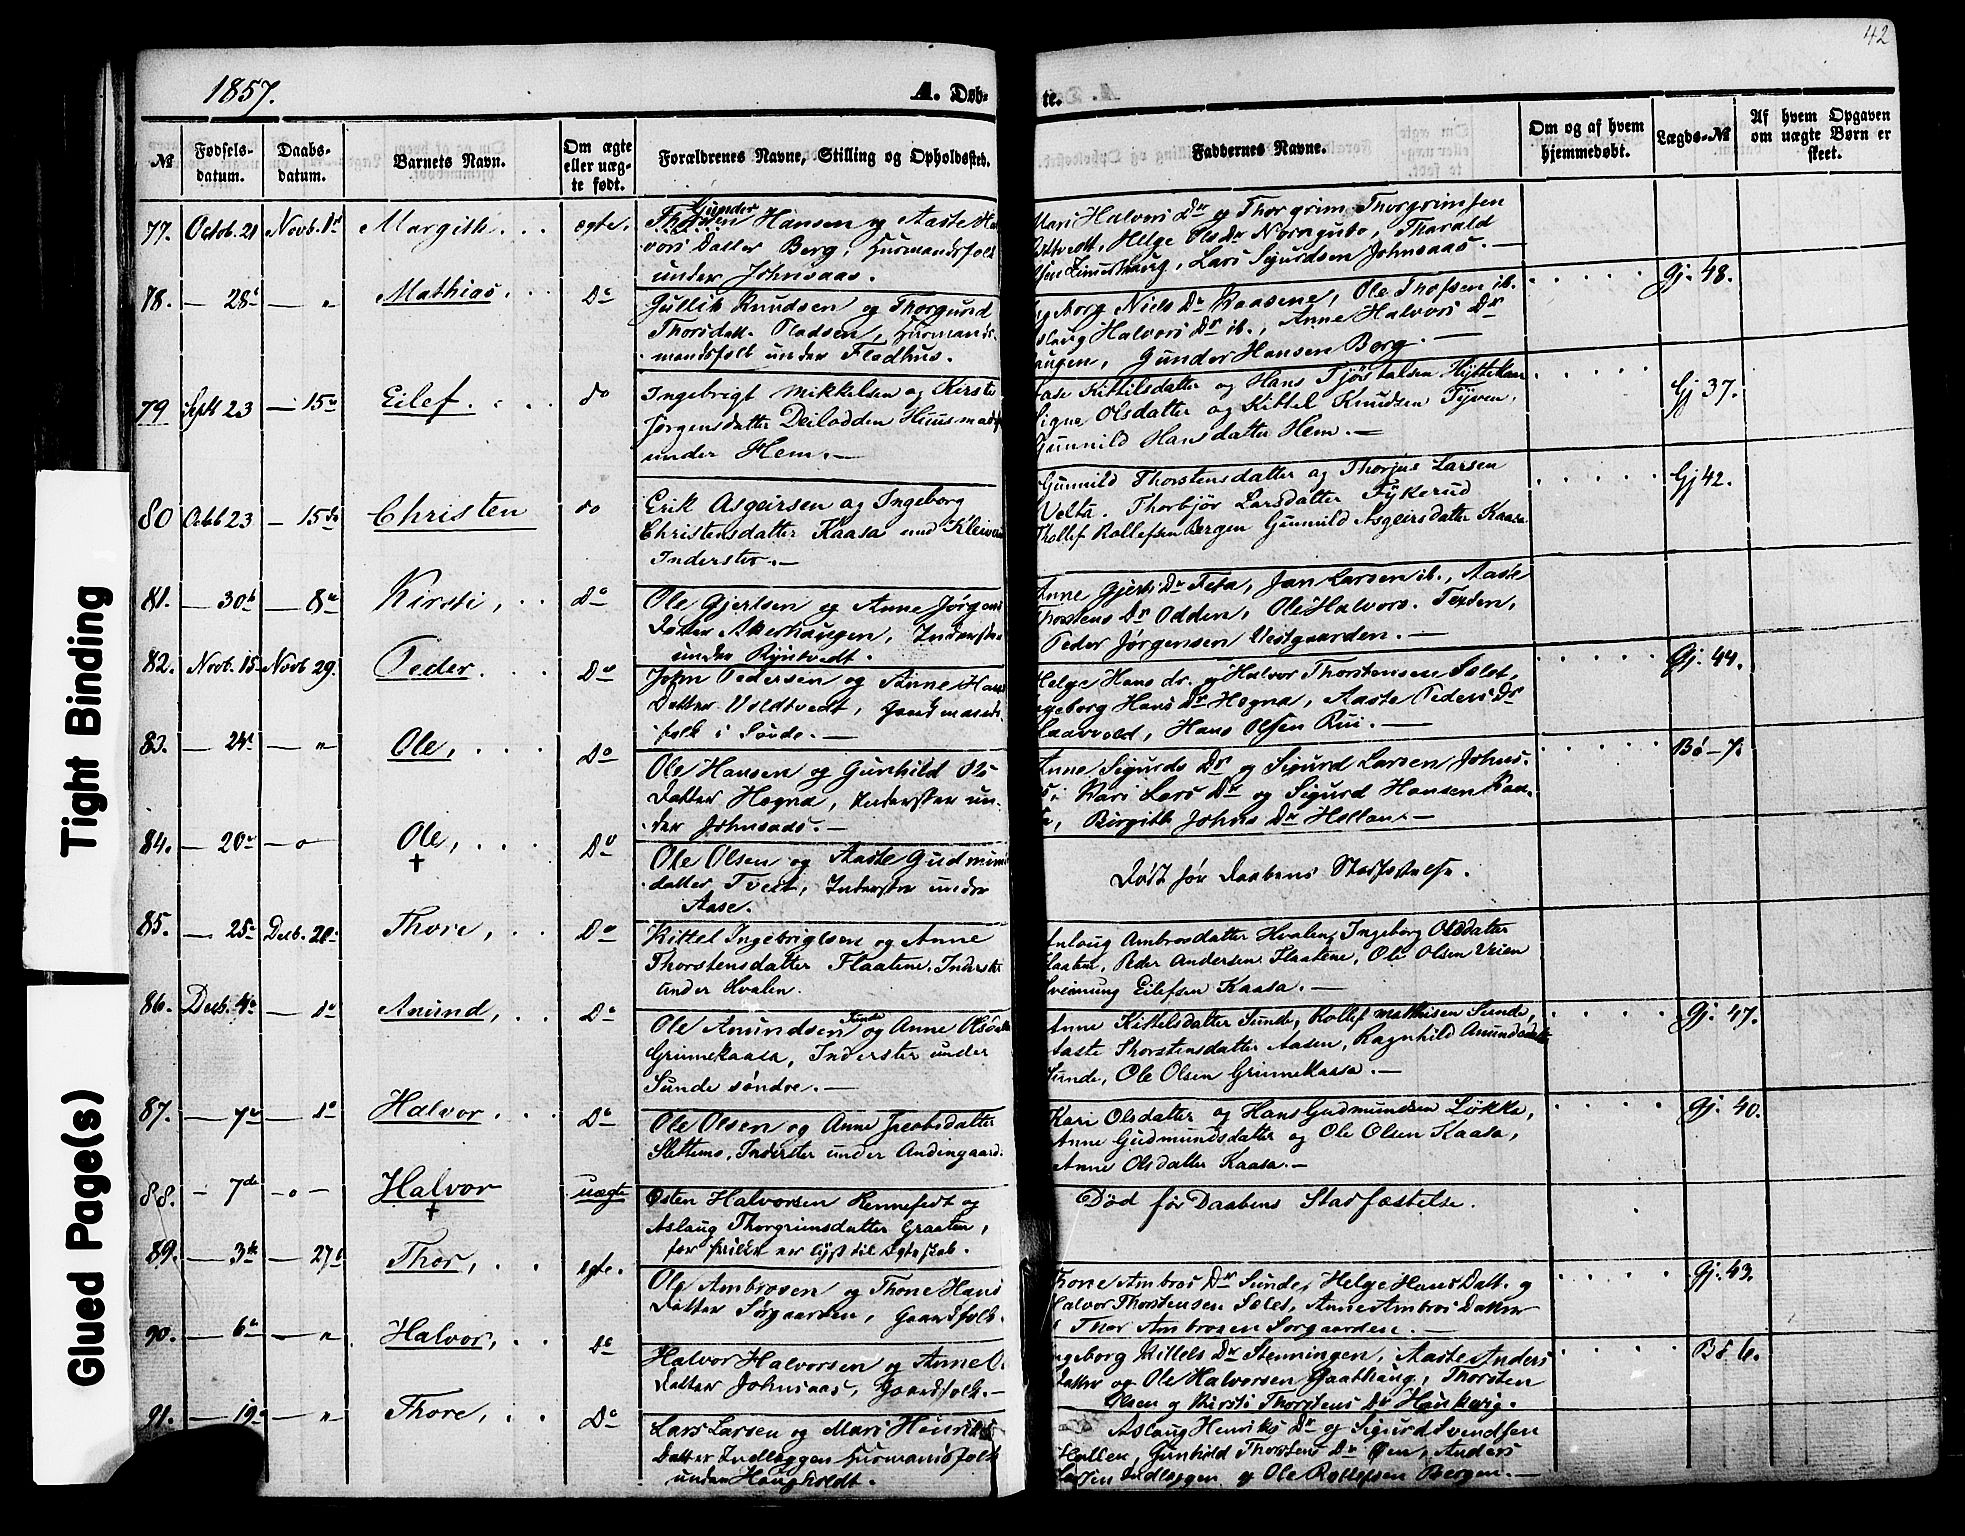 42
1857.
A. Døb-
te.
№
Fødsels-
datum.
Daabs-
datum.
Barnets Navn.
Om ægte
eller uæg-
te født.
Forældrenes Navne, Stilling og Opholdssted.
Faddernes Navne.
Om og af hvem
hjemmedøbt.
Lægds-№
Af hvem Opgaven
om uægte Børn er
skeet.
77. Octob. 21 Novb. 1st Margith ægte.
Gunder Hansen og Aaste Hal
vors Datter Berg, Huusmandsfolk
under Johnsaas.
Mari Halvors Dr og Thorgrim Thorgrimsen
Helge Ols Dr Norngubo, Tharald
Lars Sigurdsen Johnsaas.
78. — 28 — " Mathias. Do
Gullik Knudsen og Thorgund
Thorsdatt. Pladsen, Huusmands-
mandsfolk under Fladhus.
Ingeborg Niels Dr Kaasene, Ole Thofsen ib.
Aslaug Halvors Dr ib., Anne Halvors Dr
Haugen, Gunder Hansen Berg.
Gj. 48.
79 Sept 23 — 15de Eilef. do
Ingebrigt Mikkelsen og Kirste
Jørgensdatter Deilodden Huusmandsf
under Hem.
Aase Kittilsdatter og Hans
Signe Olsdatter og Kittel Knudsen Tyven,
Gunnild Hansdatter Hem.
Gj 37.
80 Octob 23 — 15de Christen do
Erik Asgeirsen og Ingeborg
Christensdatter Kaasa und Kleiven
Inderster.
Gunnild Thorstensdatter og Thorjus Larsen
Velta. Thorbjør Larsdatter Fykerud
Thollef Rollefsen Bergen Gunnild Asgeirsdatter Kaasa
Gj 42.
81. — 30te — 8de Kirsti, Do
Ole Gjertsen og Anne Jørgens
Datter Akerhaugen, Inderster
under Ryntvedt.
Anne Gjerts Dr Teta, Jan Larsen ib., Aaste
Thorstens Dr Odden, Ole Halvors. Texden,
Peder Jørgensen Vestgaarden.
82. Novb. 15 Novb 29. Peder. Do
John Pedersen og Anne Hans
Datter Voldtvedt, Gaardmands-
folk i Sunde.
Helge Hans dr. og Halvor Thorstensen Solet,
Ingeborg Hans Dr Hogna, Aaste Peders Dr
Haarvold, Hans Olsen Rui.
Gj. 44.
83. — 24 — " Ole, Do
Ole Hansen og Gunhild Ols
Datter Hogna, Inderster un-
der Johnsaas.
Anne Sigurds Dr og Sigurd Larsen Johns-
Kari Lars Dr og Sigurd Hansen Kaa-
sa, Birgith Johns Dr Hollan
Bø – 7.
84. — 20de — o Ole, † Do
Ole Olsen og Aaste Gudmunds
datter Tveit, Inderster under
Aase.
Dødt før Daabens Stadfæstelse.
85. — 25 Decb. 20 Thore, Do
Kittel Ingebrigtsen og Anne
Thorstensdatter Flaatene, Inderster
under Hvalen.
Anlaug Ambrosdatter Hvalen, Ingeborg Olsdatter
Flaaten, Peder Andersen Flaatene, Ole Olsen Veien
Sveinung Eilefsen Kaasa.
86. Decb. 4de — do Anund, Do
Ole Anundsen Sunde og Anne Olsdatter
Grinnekaasa, Inderster under
Sunde søndre.
Anne Kittelsdatter Sunde, Rollef Mathisen Sunde,
Aaste Thorstensdatter Aasen, Ragnhild Amundsdatter
Sunde, Ole Olsen Grinnekaasa.
Gj. 47.
87. — 7de — do Halvor Do
Ole Olsen og Anne Jacobsdatter
Slettemo, Inderster under Andingaard.
Kari Olsdatter og Hans Gudmundsen Løkka,
Anne Gudmundsdatter og Ole Olsen Kaasa,
Anne Olsdatter Kaasa.
Gj. 40.
88. – 7de – o – Halvor † uægte
Østen Halvorsen Rennefedt og
Aslaug Thorgrimsdatter Graaten,
for hvilke er lyst til Ægteskab.
Død før Daabens Stadfæstelse.
89. — 3de — 27de Thor, ægte.
Ole Ambrosen og Thone Hans
Datter Sørgaarden, Gaardfolk.
Thone Ambros Dr Sunde, Helge Hans Datt. og
Halvor Thorstensen Solet, Anne Ambros Datter
Thor Ambrosen Sørgaarden.
Gj. 43.
90. — 6te — " Halvor, Do
Halvor Halvorsen og Anne O
Datter Johnsaas, Gaardfolk.
Ingeborg Kittels Dr Stenningen, Aaste Anders
Datter og Ole Halvorsen Gaathaug, Thorsten
Olsen og Kirsti Thorstens Dr Haukvig.
Bø 6.
91. — 19 — " Thore, Do
Lars Larsen og Mari Henriks
Datter Indlæggen Huusmandsfolk
under Haugholdt.
Aslaug Henriks Dr og Sigurd Svendsen
Hallen, Gunhild Thorstens Dr Øen, Anders
Larsen Indlæggen og Ole Rollefsen Bergen.
Tight Binding
Glued Page(s)